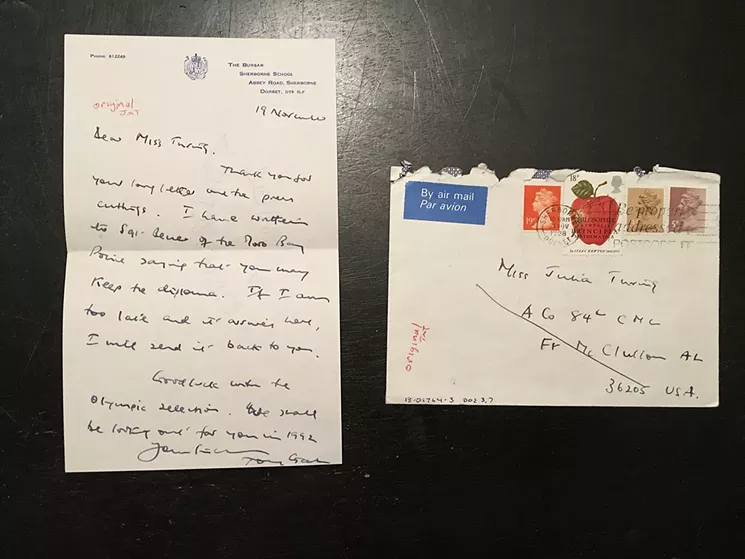 PHONE 812249
THE BURSAR
SHERBORNE SCHOOL
ABBEY ROAD, SHERBORNE
DORSET, DT9
19 November
original
JMT
Dear Miss Turing,
Thank you for
your long letter and the press
cuttings. I have written
to Sgt. of the Morro Bay
Police saying that you may
keep the diploma. If I am
too late and it arrives here,
I will send it back to you.
Good luck with the
Olympic selection. We shall
be looking out for you in 1992
Tony
By air mail
Par avion
19
18P
PHILOSOPHIÆ
NATURALIS
PRINCIPIA
MATHEMATICA
SIR ISAAC NEWTON
Be properly
addressed
POSTCODE IT
Miss Julia Turing
A Co 84th CML
Ft McClellan AL
36205 USA.
original
JMT